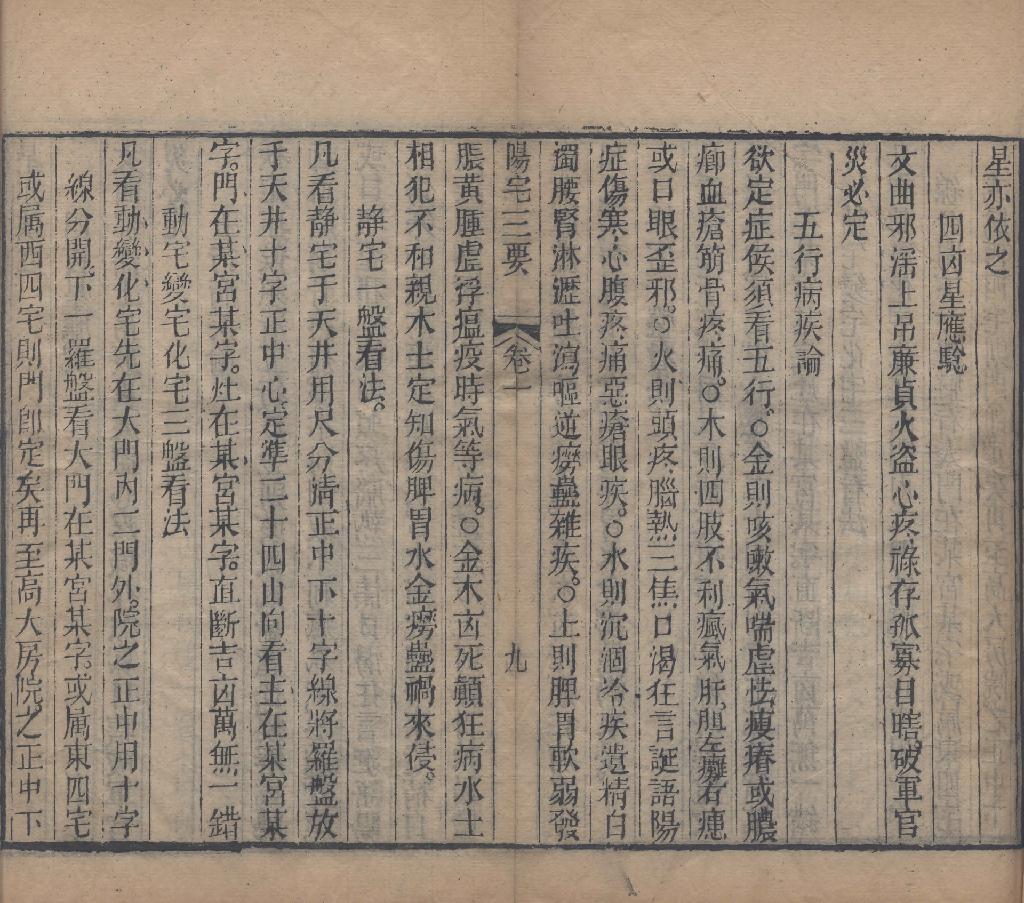 星亦依之
四凶星應驗
文曲邪淫上吊廉貞火盜心疼祿存孤寡目瞎。破軍官
災必定
五行病疾論
欲定症候須看五行。○金則咳嗽氣喘虛怯瘦瘠或膿
血瘡筋骨疼痛。○木則四肢不利瘋氣肝胆左癱右瘓
或口眼歪邪。○火則頭疼腦熱三焦口渴狂言誕語陽
症傷寒心腹疼痛惡瘡眼疾。○水則沉涸冷疾遺精白
濁腰腎淋瀝吐瀉嘔逆癆蠱雜疾。○土則脾胃軟弱發
陽宅三要 卷一 九
脹黃腫虛浮瘟疫時氣等病。○金木凶死顛狂病水土
相犯不和親木土定知傷脾胃水金癆蠱禍來侵。
静宅一盤看法。
凡看静宅于天井用尺分清正中下十字線將羅盤放
于天井十字正中心定準二十四山向看主在某宮某
字。門在某宮某字。灶在某宮某字。直斷吉凶萬無一錯
動宅變宅化宅三盤看法
凡看動變化宅先在大門內二門外。院之正中用十字
線分開下一羅盤看大門在某宮某字。或属東四宅
或属西四宅則門卽定矣再至高大房院之正中下